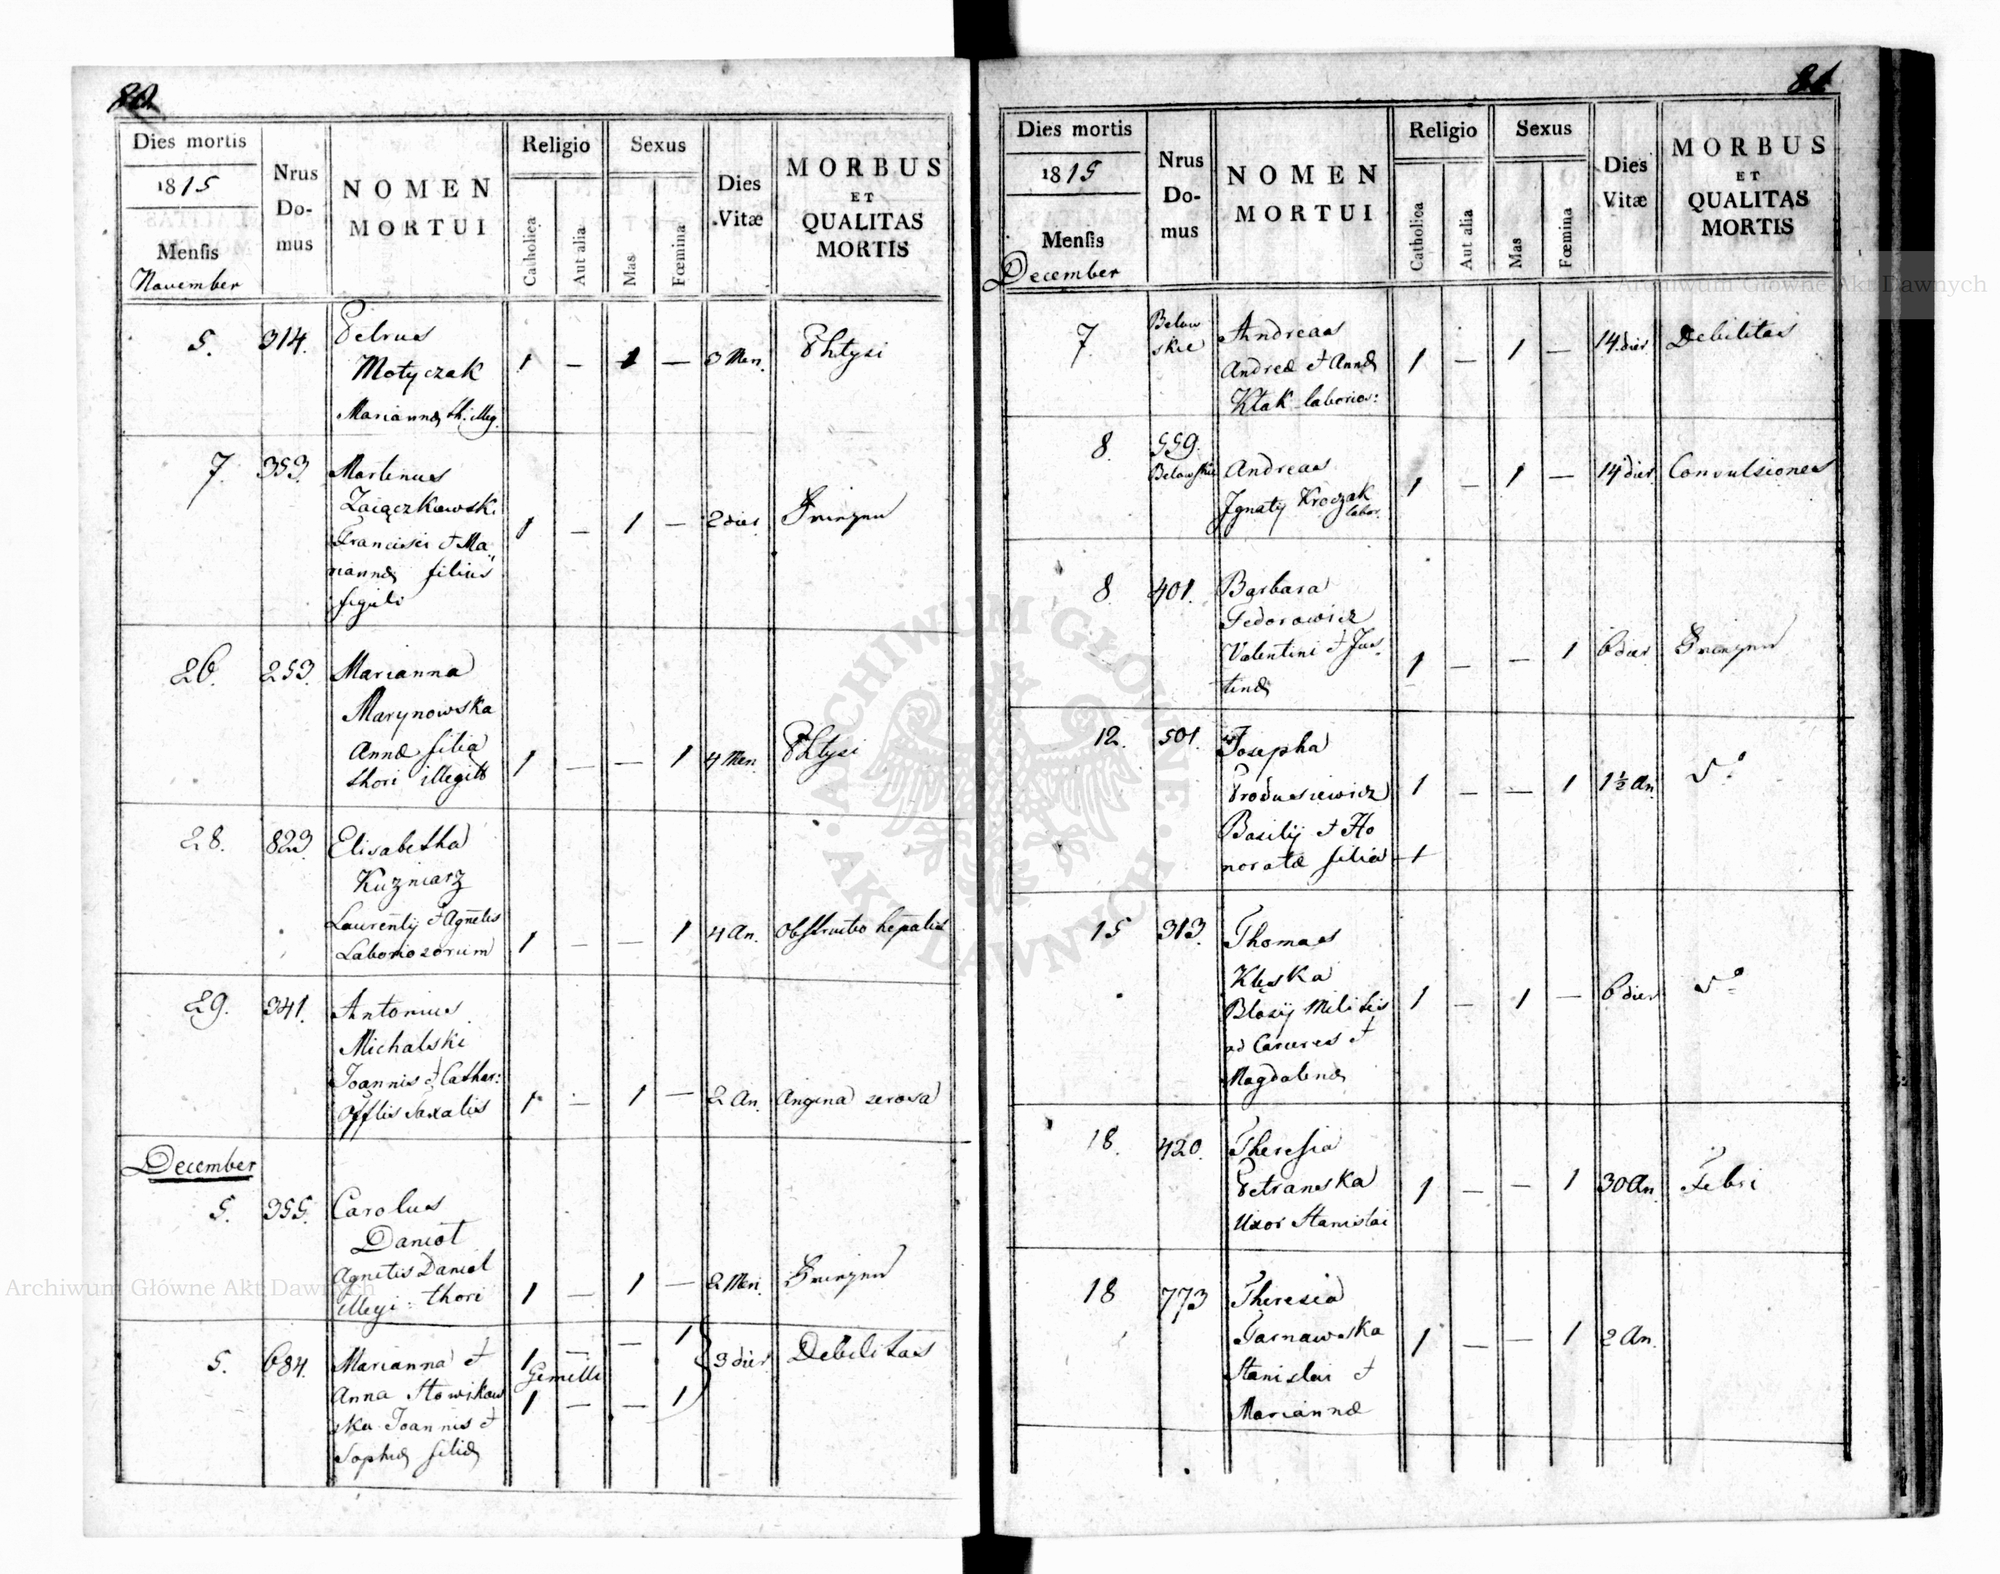 80.
Dies mortis
1815
Mensis
November
Nrus
Do-
mus
NOMEN
MORTUI
Religio
Catholica
Aut alia
Sexus
Mas
Fœmina
Dies
Vitæ
MORBUS
ET
QUALITAS
MORTIS
5. 314. Petrus
Motyczak 1 — 1 — 3 Men. Phtysi
Mariannæ th. illeg.
7. 353. Martinus
Zaiączkowski
Francisci et Ma- 1 — 1 — 2 dier
riannæ filius
figuli
26. 253. Marianna
Marynowska
Annæ filia 1 — — 1 4 Men. Phtysi
thori illegitt
28. 823. Elisabetha
Kuzniarz
Laurentij et Agnetis 1 — — 1 4 An. Obstructio hepatis
Laboriosorum
29. 341. Antonius
Michalski
Joannis et Cathar: 1 — 1 — 2 An. Angina serosa
Offlis Saxalis
December
5. 355. Carolus
Daniol
Agnetis Daniol 1 — 1 — 2 Men.
illegi: thori
5. 684. Marianna et 1 — — 1 3 dier Debilitas
Gemelli
Anna Słowikow 1 — — 1
ska Joannis et
Sophiæ filiæ
81
Dies mortis
1815
Mensis
December
Nrus
Do-
mus
NOMEN
MORTUI
Religio
Catholica
Aut alia
Sexus
Mas
Fœmina
Dies
Vitæ
MORBUS
ET
QUALITAS
MORTIS
7. Below
skie Andreas
Andreæ et Annæ 1 — 1 — 14 dier Debilitas
Kłak laborios:
8. 559.
Belowskie Andreas
Ignatij Kroczak 1 — 1 — 14 dier Convulsiones
labor.
8. 401. Barbara
Fedorowicz
Valentini et Jus- 1 — — 1 6 dier
tinæ
12. 501. Josepha
Produsiewicz 1 — — 1 1½ An. do
Basilij et Ho
noratæ filia
15 313. Thomas
Klęska
Blasij Militis 1 — 1 — 6 dier do
ad Carceres et
Magdalenæ
18. 420. Theresia
Petranska 1 — — 1 30 An. Febri
Uxor Stanislai
18 773 Theresia
Tarnawska 1 — — 1 2 An.
Stanislai et
Mariannæ
Archiwum Główne Akt Dawnych
Archiwum Główne Akt Dawnych
ARCHIWUM GŁÓWNE AKT DAWNYCH